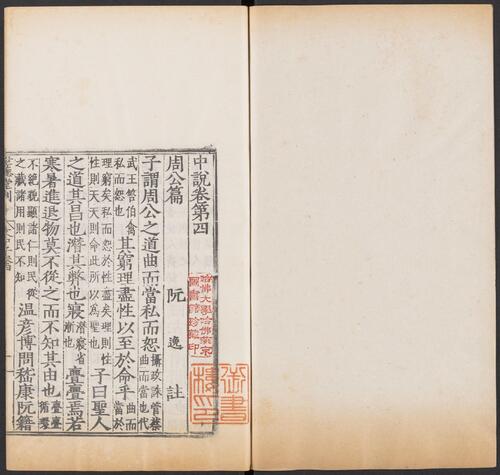 中說卷第四
周公篇
阮 逸 註
子謂周公之道曲而當私而恕攝政誅管蔡曲而當也代
武王笞伯禽私而恕也其窮理盡性以至於命乎曲而當於
理窮矣私而恕於性盡矣理則性
性則天天則命此所以為聖也子曰聖人
之道其昌也潛其弊也寢潛察省漸也亹亹焉若
寒暑進退物莫不從之而不知其由也亹亹循
不絕貌顯諸仁則民從
之藏諸用則民不知溫彥博問嵇康阮籍
哈佛大學哈佛燕京
圖書館珍藏印